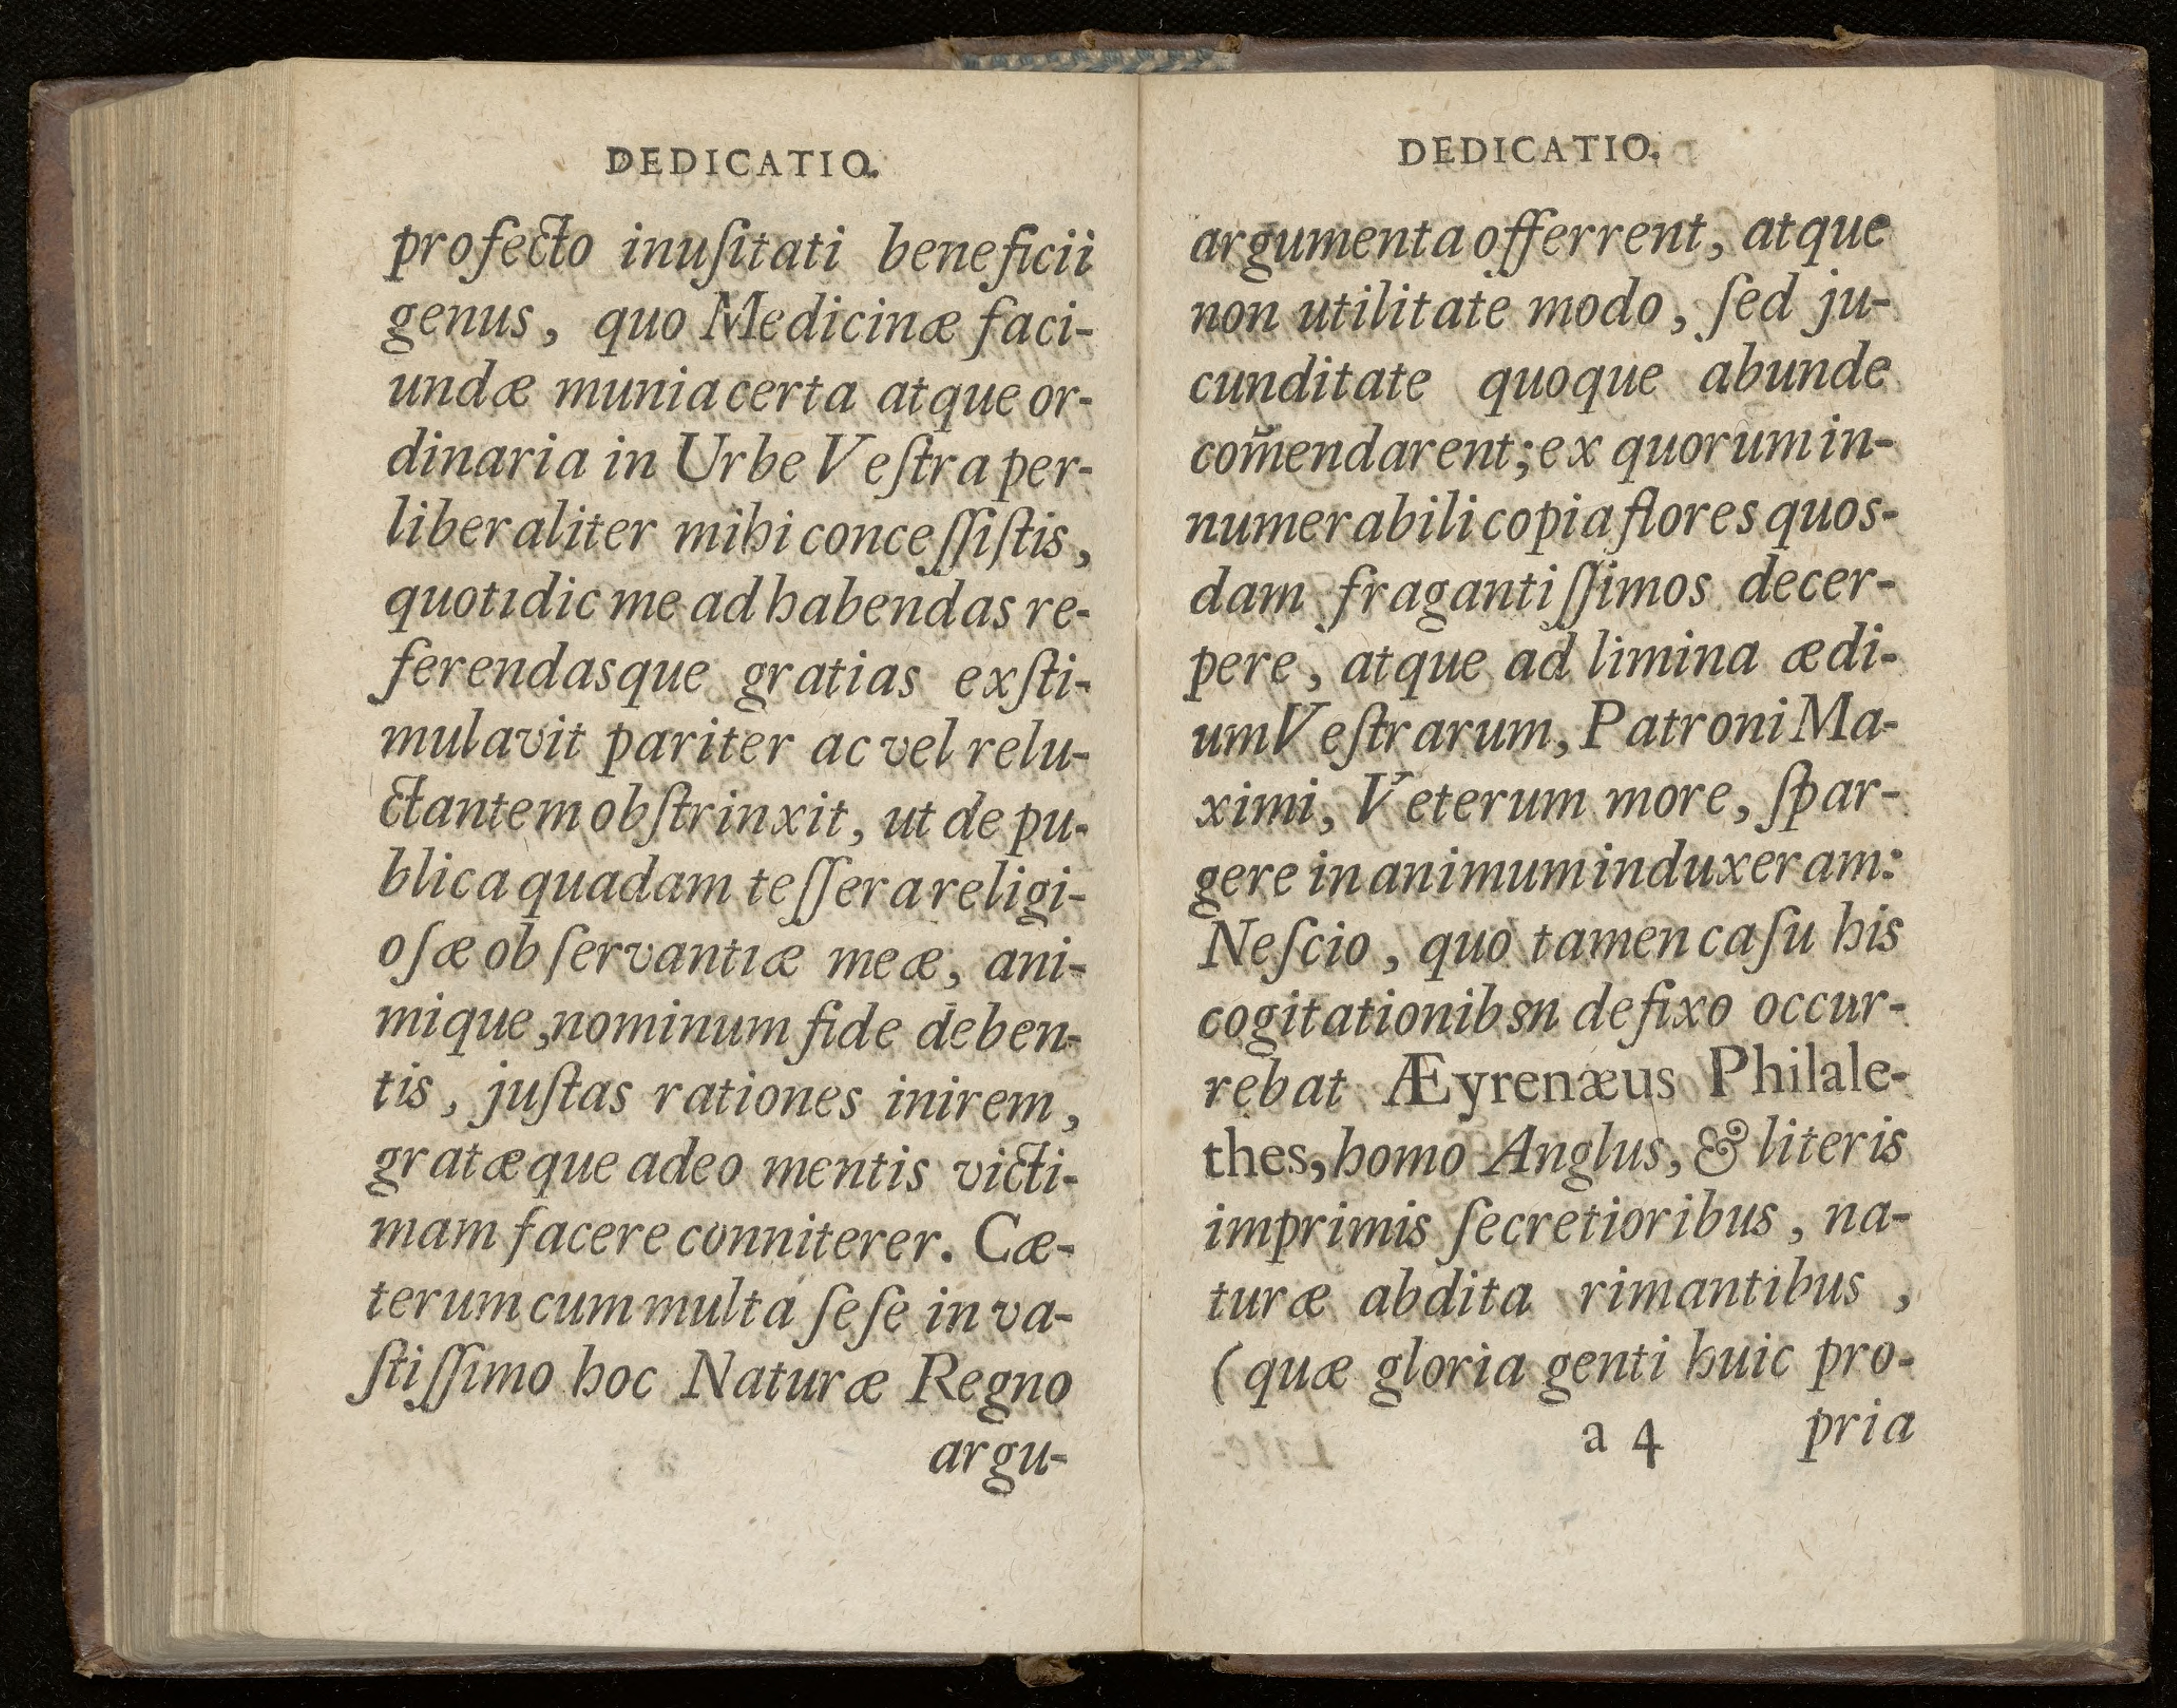 DEDICATIO.
profecto inuſitati beneficii
genus, quo Medicinæ faci-
undæ munia certa atque or-
dinaria in Urbe Veſtra per-
liberaliter mihi conceſſiſtis,
quotidic me ad habendas re-
ferendasque gratias exſti-
mulavit pariter ac vel relu-
ctantem obſtrinxit, ut de pu-
blica quadam teſſera religi-
oſæ obſervantiæ meæ, ani-
mique, nominum fide deben-
tis, juſtas rationes inirem,
gratæque adeo mentis victi-
mam facere conniterer. Cæ-
terum cum multa ſeſe in va-
ſtiſſimo hoc Naturæ Regno
argu-
DEDICATIO.
argumenta offerrent, atque
non utilitate modo, ſed ju-
cunditate quoque abunde
com̃endarent; ex quorum in-
numerabili copia flores quos-
dam fragantiſſimos decer-
pere, atque ad limina ædi-
um Veſtrarum, Patroni Ma-
ximi, Veterum more, ſpar-
gere in animum induxeram:
Neſcio, quo tamen caſu his
cogitationibsn defixo occur-
rebat Æyrenæus Philale-
thes, homo Anglus, & literis
imprimis ſecretioribus, na-
turæ abdita rimantibus,
(quæ gloria genti huic pro-
a 4 pria